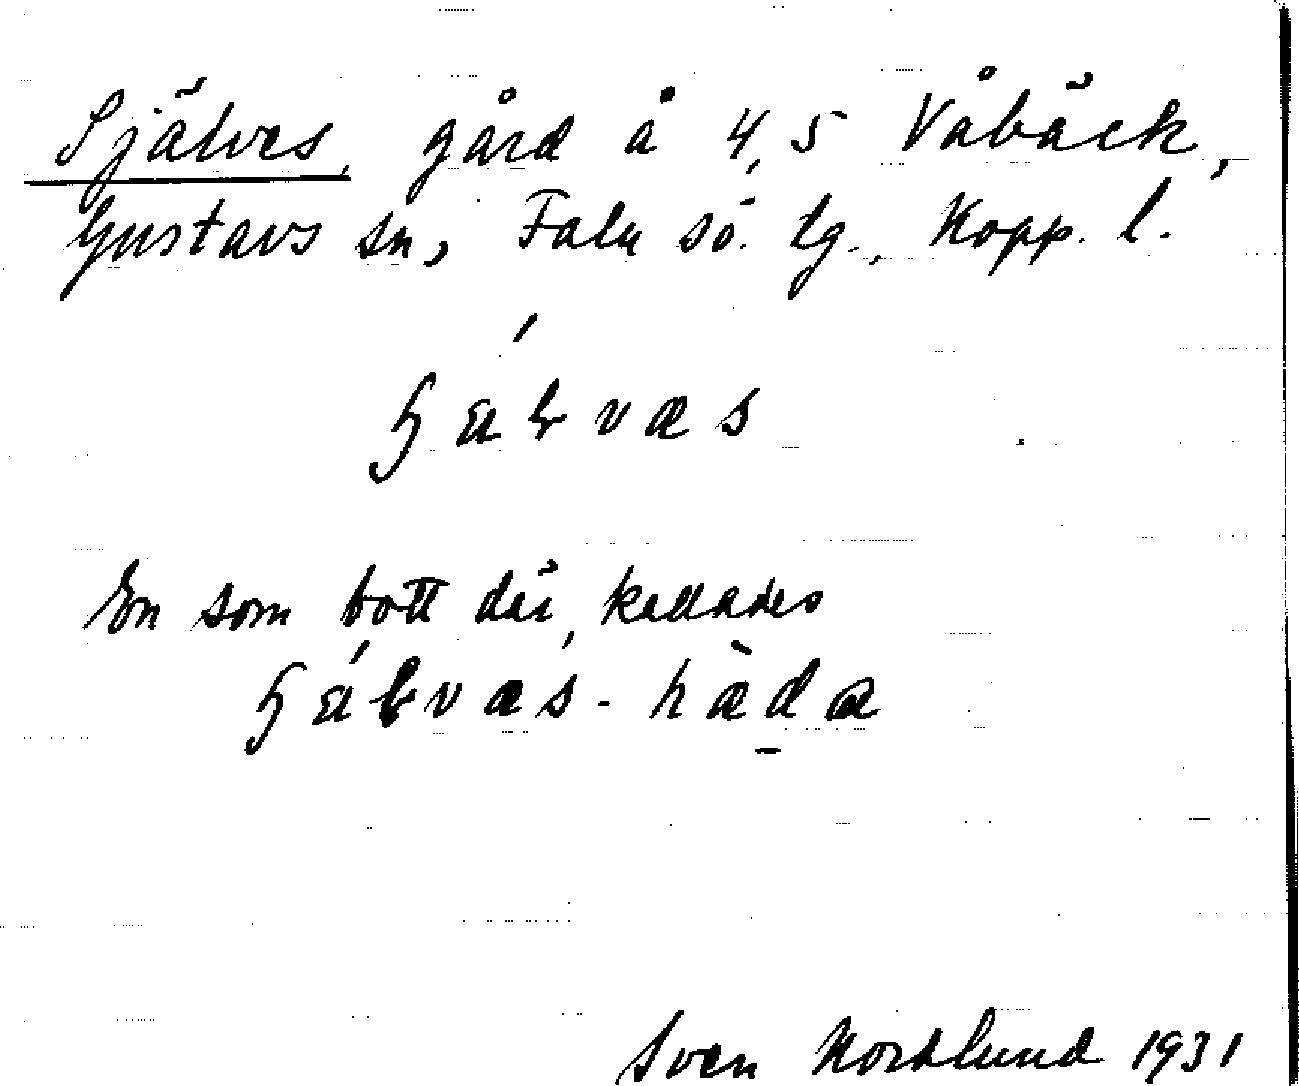 Själves, gård å 4,5 Våbäck,
Gustavs sn, Falu sö. tg., Kopp. l.
En som bott där, kallades
Sven Nordlund 1931